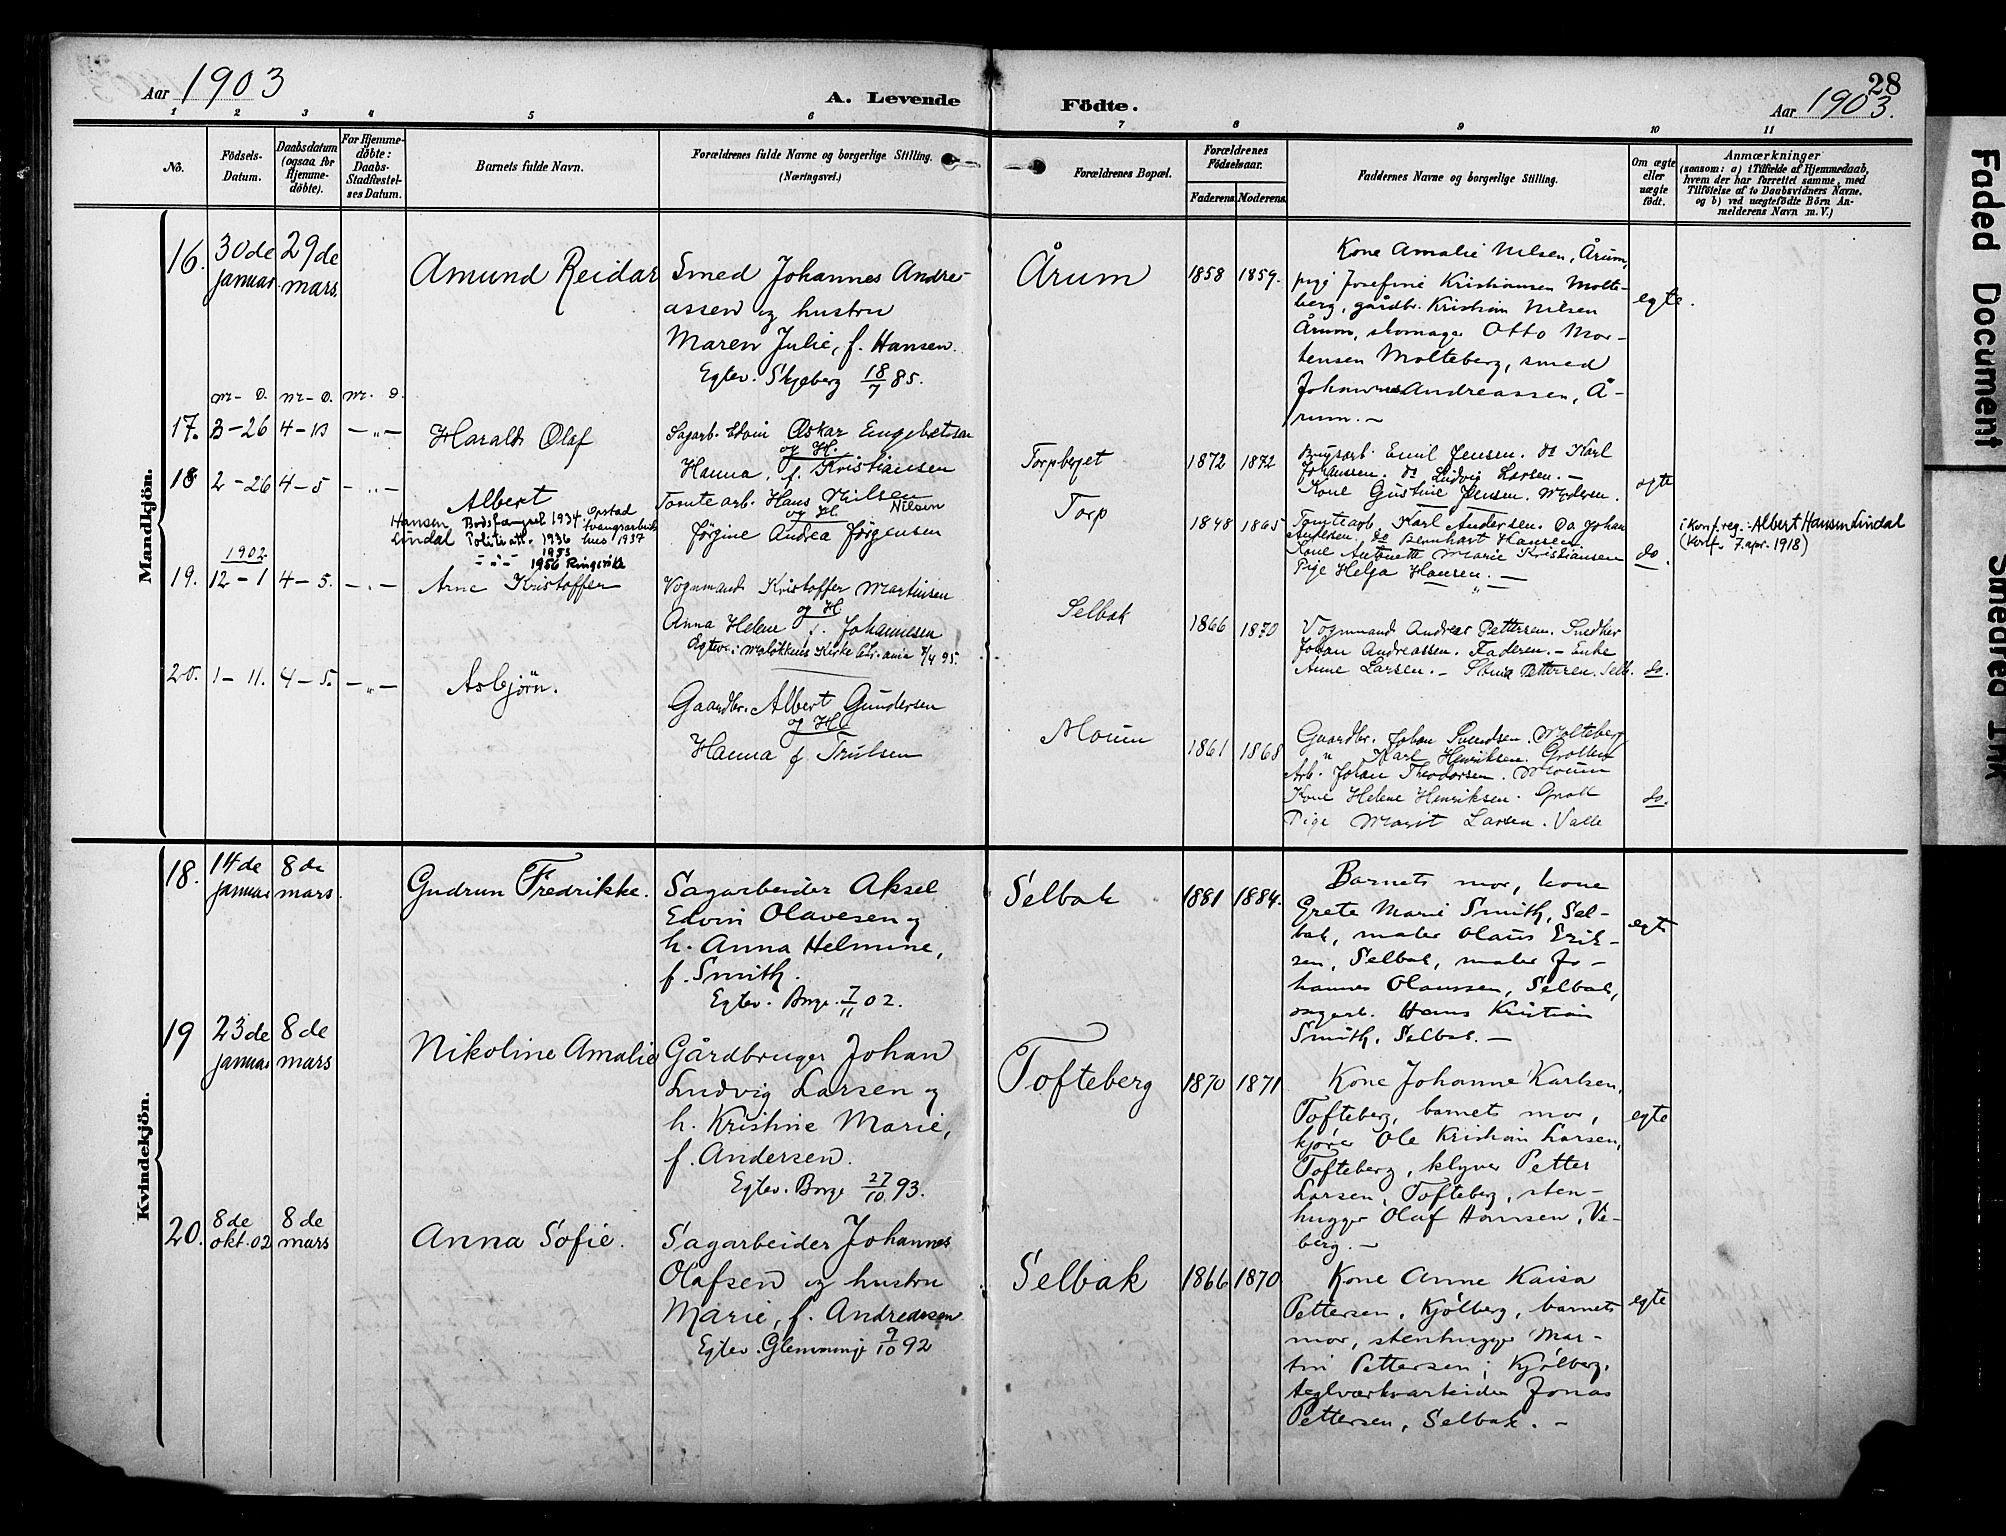 Aar 1903
A. Levende Födte.
28
Aar 1903.
1 2 3 4 5 6 7 8 9 10 11
No.
Födsels-
Datum.
Daabsdatum
(ogsaa for
Hjemme-
döbte).
For Hjemme-
döbte:
Daabs-
Stadfæstel-
ses Datum.
Barnets fulde Navn.
Forældrenes fulde Navne og borgerlige Stilling.
(Næringsvei.)
Forældrenes Bopæl.
Forældrenes
Födselsaar.
Faderens Moderens
Faddernes Navne og borgerlige Stilling.
Om ægte
eller
uægte
födt.
Anmærkninger
(saasom: a) i Tilfælde af Hjemmedaab,
hvem der har forrettet samme, med
Tilföielse af to Daabsvidners Navne.
og b) ved uægtefödte Börn An-
melderens Navn m. V.)
Mandkjön.
16.
30de
januar
29de
mars.
Amund Reidar
Smed Johannes Andre-
assen og hustru
Maren Julie, f. Hansen.
Egtev. Skjeberg 18/7 85.
Årum
1858 1859.
Kone Amalie Nilsen, Årum,
pige Josefine Kristiansen Molte-
berg, gårdbr. Kristian Nilsen
Årum, skomager Otto Mor-
tensen Molteberg, smed
Johannes Andreassen, Å-
rum. —
egte.
M— D. M— D. M. D.
17. 3—26 4—13 — „ —
Harald Olaf
Sagarb. Edvin Oskar Engebretsen
og H.
Hanna, f. Kristiansen
Torpberget
1872 1872
Brugsarb. Emil Jensen. do Karl
Johanssen. do Ludvig Larsen. —
Kone Gustine Jensen. Moderen.
egte
18 2—26 4—5 — „ —
Albert
Hansen
Lindal
Bodsfængsel 1934. Opstad
tvangsarbeids
hus 1937
Politiatt. 1936
— „ — 1953
— „ — 1956 Ringsvike
Tomtearb. Hans Nilsen
Nilsen
og H.
Jørgine Andrea Jørgensen
Torp
1848 1865
Tomtearb. Karl Andersen. Do Johan
Andersen. do Bernhart Hansen
Kone Antonette Marie Kristiansen
Pige Helga Hansen. —
do.
i konf.reg.: Albert Hansen Lindal
(konf. 7. apr. 1918)
1902
19. 12—1 4—5. — „ —
Arne Kristoffer
Vognmand Kristoffer Martinsen
og H
Anna Helene f. Johannesen
Egtev. i Maløkkens Kirke Chr.ania /4 95.
Selbak
1866 1870
Vognmand Andreas Pettersen. Snedker
Johan Andreassen. Faderen. — Enke
Anne Larsen. — Pettersen. Selb.
do.
20. 1—11. 4—5. — „ —
Asbjörn.
Gaardbr. Albert Gundersen
og H.
Hanna f Trulsen
Moum
1861 1868
Gaardbr. Johan Svendsen. Molteberg
„ Karl Henriksen. Grotten
Arb. Johan Theodorsen. Moum
Kone Helene Henriksen. Grott
Pige Marit Larsen. Valle
do.
Kvindekjön.
18.
14de
januar
8de
mars.
Gudrun Fredrikke.
Sagarbeider Aksel
Edvin Olavesen og
h. Anna Helmine,
f. Smith.
Egtev. Borge 7/11 02.
Selbak
1881 1884.
Barnets mor, kone
Grete Marie Smith, Sel-
bak, maler Olaus Erik-
sen, Selbak, maler Jo-
hannes Olaussen, Selbak,
sagarb. Hans Kristian
Smith, Selbak. —
egte
19
23de
januar
8de
mars
Nikoline Amalie
Gårdbruger Johan
Ludvig Larsen og
h. Kristine Marie,
f. Andersen.
Egtev. Borge 27/10 93.
Tofteberg
1870 1871
Kone Johanne Karlsen,
Tofteberg, barnets mor,
kjører Ole Kristian Larsen,
Tofteberg, klyver Petter
Larsen, Tofteberg, sten-
hugger Olaf Hansen, Ve-
berg. —
egte
20.
8de
okt. 02
8de
mars
Anna Sofie.
Sagarbeider Johannes
Olafsen og hustru
Marie, f. Andreassen
Egtev. Glemminge 9/10 92
Selbak
1866 1870
Kone Anne Kaisa
Pettersen, Kjølberg, barnets
mor, stenhugger Mar-
tin Pettersen, Kjølberg,
teglverksarbeider Jonas
Pettersen, Selbak. —
egte
Faded Document
Smeared Ink